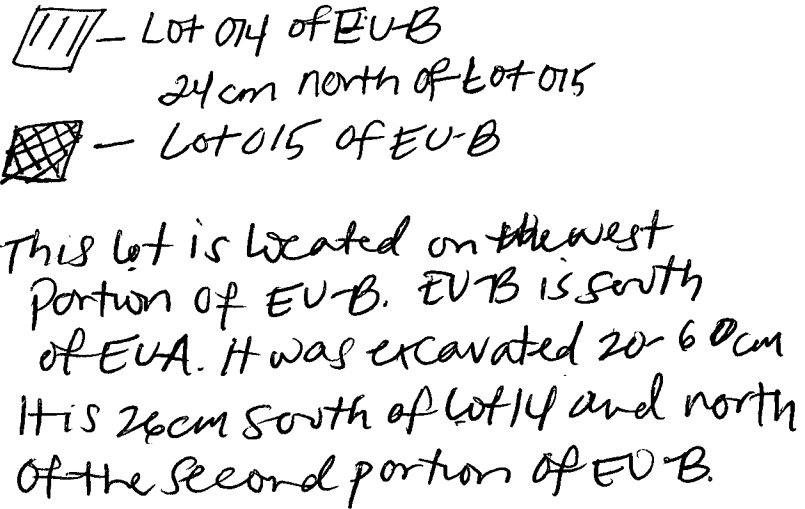 – Lot 014 of EU-B
24cm north of Lot 015
– Lot 015 of EU-B
This lot is located on the west
portion of EU-B. EU-B is south
of EUA. It was excavated 20-60cm
It is 26cm south of Lot 14 and north
of the second portion of EU-B.